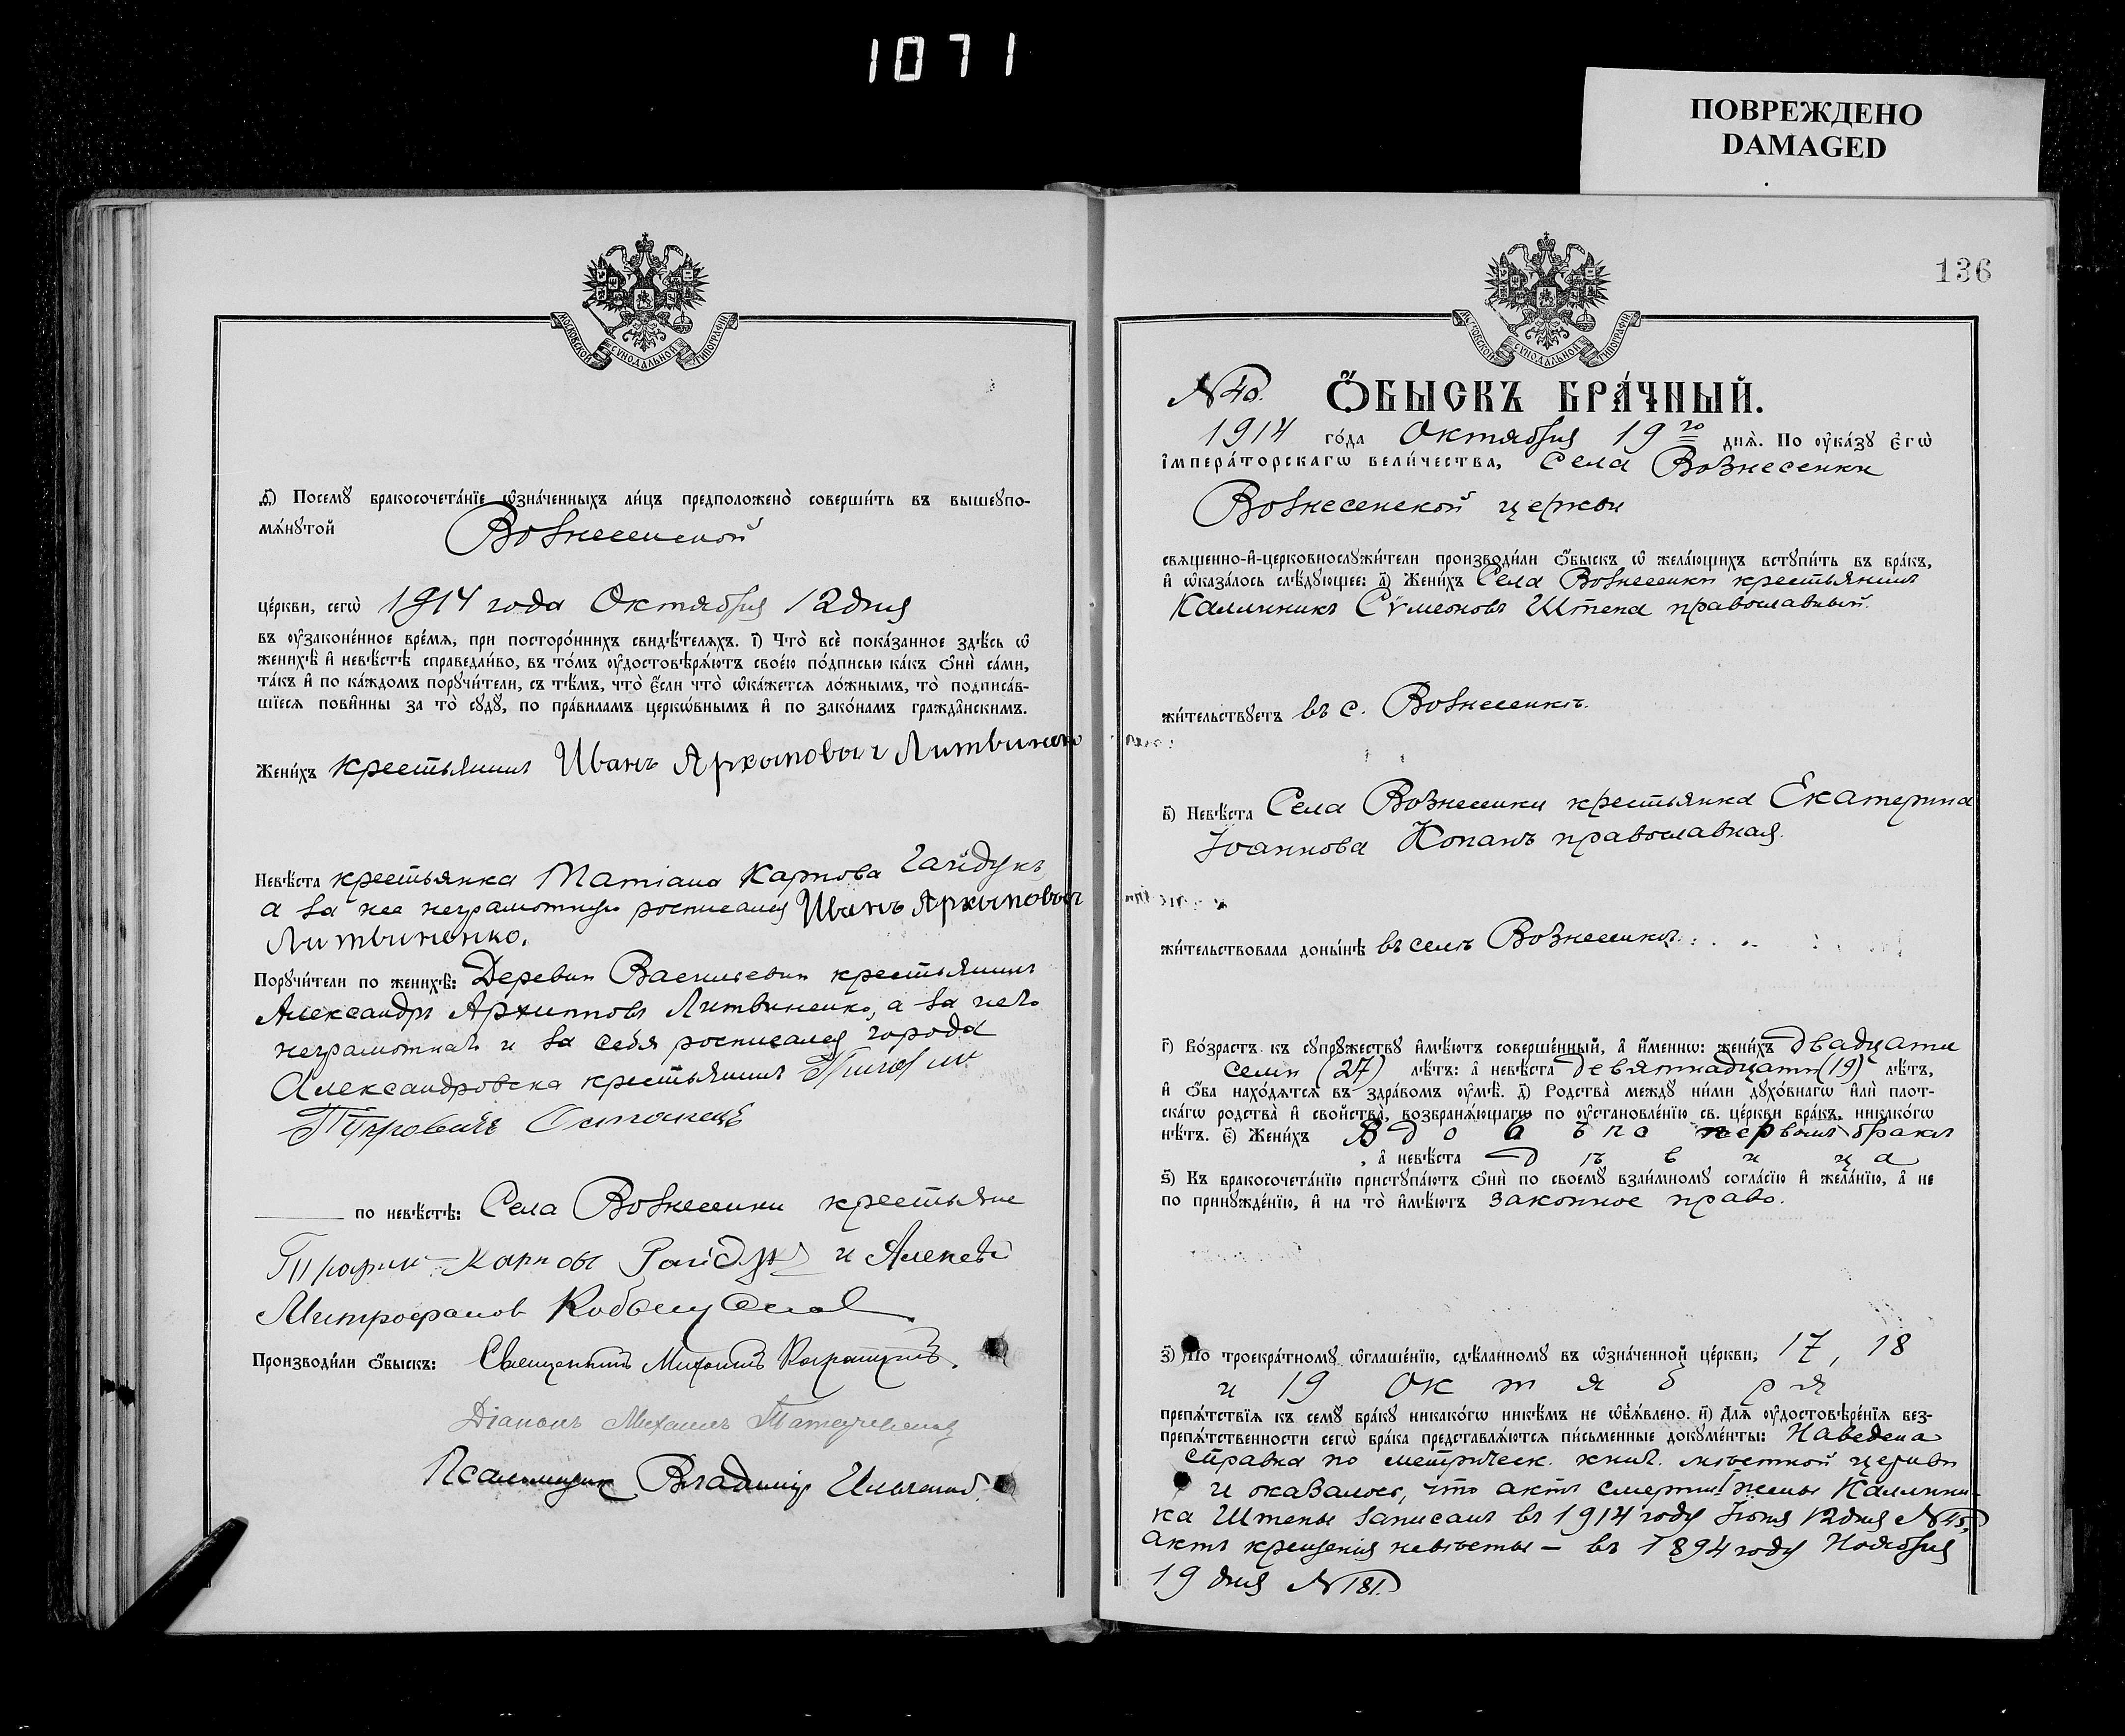 1071
ПОВРЕЖДЕНО
DAMAGED
МОСКОВСКОЙ СѴНОДАЛЬНОЙ ТИПОГРАФІИ
д҃і) Посемꙋ бракосочета́нїе ѡ҆зна́ченныхъ ли́цъ предположено̀ соверши́ть въ вышеꙋпо-
мѧ́нꙋтой Вознесенской
це́ркви, сегѡ̀ 1914 года Октября 12 дня
въ ᲂу҆законе́нное вре́мѧ, при посторо́ннихъ свидѣ́телѧхъ. і҃) Что̀ всѐ пока́занное здѣ́сь ѡ҆
женихѣ̀ и҆ невѣ́стѣ справедли́во, въ то́мъ ᲂу҆достовѣрѧ́ютъ свое́ю по́дписью ка́къ ѻ҆нѝ са́ми,
та́къ и҆ по ка́ждомъ порꙋчи́тели, съ тѣ́мъ, что̀ є҆́сли что̀ ѡ҆ка́жетсѧ ло́жнымъ, то̀ подписа́в-
шїесѧ пови́нны за то̀ сꙋдꙋ̀, по пра́виламъ церко́внымъ и҆ по зако́намъ гражда̑нскимъ.
Жени́хъ крестьянинъ Иванъ Архыповыч Литвиненко
Невѣ́ста крестьянка Татіана Карпова Гайдукъ,
а за нее неграмотную росписался Иванъ Архыповыч
Литвиненко.
Порꙋчи́тели по женихѣ̀: Деревни Васильевки крестьянинъ
Александръ Архиповъ Литвиненко, а за него
неграмотнаго и за себя росписался города
Александровска крестьянинъ
Остапецъ
по невѣ́стѣ: Села Вознесенки крестьяне
Карповъ Гайдукъ и Алексѣй
Митрофановъ
Производи́ли ѻ҆́быскъ: Священникъ Михаилъ
Діаконъ Михаилъ
Псаломщик Владиміръ
136
МОСКОВСКОЙ СѴНОДАЛЬНОЙ ТИПОГРАФІИ
№ 40. Ѻ҆́БЫСКЪ БРА́ЧНЫЙ.
1914 го́да Октября 19го днѧ̀. По ᲂу҆ка́зꙋ є҆гѡ̀
і҆мпера́торскагѡ вели́чества, Села Вознесенки
Вознесенской церкви
свѧщенно-и҆-церковнослꙋжи́тели производи́ли ѻ҆́быскъ ѡ҆ жела́ющихъ встꙋпи́ть въ бра́къ,
и҆ ѡ҆каза́лось слѣ́дꙋющее: а҃) Жени́хъ Села Вознесенки крестьянинъ
Каллиникъ Сѵмеоновъ Штепа православный.
жи́тельствꙋетъ въ с. Вознесенкѣ.
в҃) Невѣ́ста Села Вознесенки крестьянка Екатерина
Іоаннова Копанъ православная.
жи́тельствовала доны́нѣ въ селѣ Вознесенкѣ.
г҃) Во́зрастъ къ сꙋпрꙋ́жествꙋ и҆мѣ́ютъ соверше́нный, а҆ и҆́меннѡ: жени́хъ двадцати
семи (27) лѣ́тъ: а҆ невѣ́ста девятнадцати (19) лѣ́тъ,
и҆ ѻ҆́ба нахо́дѧтсѧ въ здра́вомъ ᲂу҆мѣ̀. д҃) Родства̀ междꙋ̀ ни́ми дꙋхо́внагѡ и҆лѝ плот-
ска́гѡ родства̀ и҆ свойства̀, возбранѧ́ющагѡ по ᲂу҆становле́нїю св. це́ркви бра́къ, никако́гѡ
нѣ́тъ. є҃) Жени́хъ вдовъ по первомъ бракѣ
, а҆ невѣ́ста дѣвица
ѕ҃) Къ бракосочета́нїю пристꙋпа́ютъ ѻ҆нѝ по своемꙋ̀ взаи́мномꙋ согла́сїю и҆ жела́нїю, а҆ не
по принꙋжде́нїю, и҆ на то̀ и҆мѣ́ютъ законное право.
з҃) По троекра́тномꙋ ѡ҆глаше́нїю, сдѣ́ланномꙋ въ ѡ҆зна́ченной це́ркви, 17, 18
и 19 Октября
препѧ́тствїѧ къ семꙋ̀ бра́кꙋ никако́гѡ никѣ́мъ не ѡ҆б̾ѧ́влено. и҃) Длѧ̀ ᲂу҆достовѣре́нїѧ без-
препѧ́тственности сегѡ̀ бра́ка представлѧ́ютсѧ пи́сьменные докꙋме́нты: Наведена
справка по метрическ. книг. мѣстной церкви
и оказалось, что актъ смерти жены Каллини-
ка Штепы записанъ въ 1914 году Іюня 12 дня № 45,
актъ крещенія невѣсты – въ 1894 году Ноября
19 дня № 181.